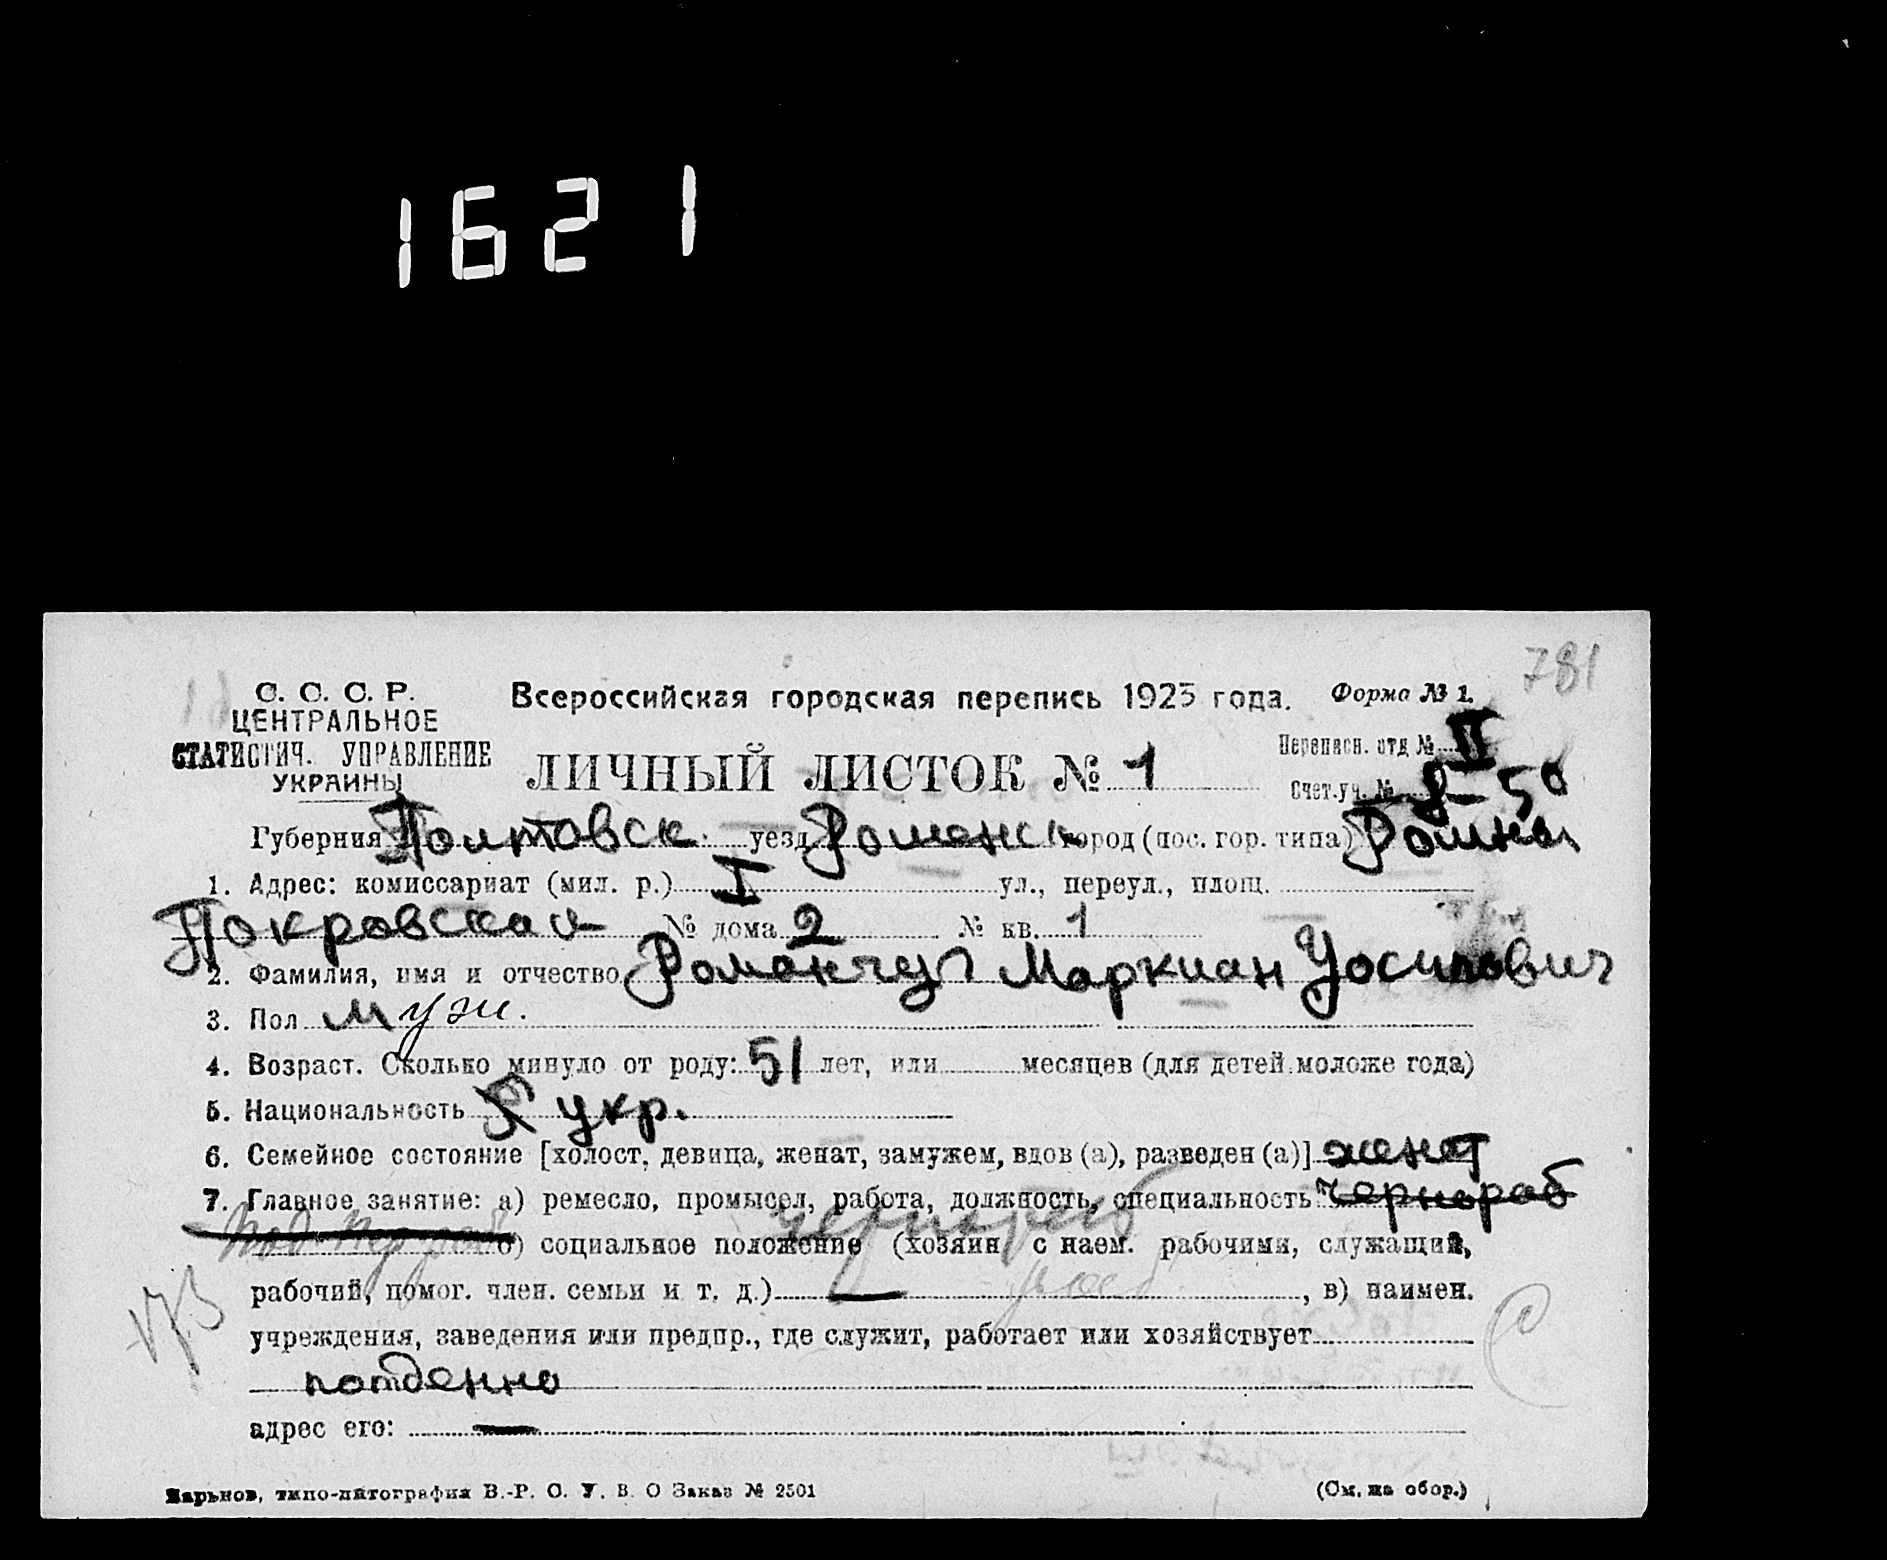 1621
781
С. С. С. Р.
ЦЕНТРАЛЬНОЕ
СТАТИСТИЧ. УПРАВЛЕНИЕ
УКРАИНЫ
Всероссийская городская перепись 1923 года.
Форма № 1.
ЛИЧНЫЙ ЛИСТОК № 1
Переписн. отд. № II
Счет.уч. № 8-50
Губерния Полтовск. уезд Роменск город (пос. гор. типа) Ромны
1. Адрес: комиссариат (мил. р.) I ул., переул., площ.
Покровская № дома 2 № кв. 1
2. Фамилия, имя и отчество Маркиан Уосипович
3. Пол муж.
4. Возраст. Сколько минуло от роду: 51 лет, или месяцев (для детей моложе года)
5. Национальность укр.
6. Семейное состояние [холост, девица, женат, замужем, вдов (а), разведен (а)] женат
7. Главное занятие: а) ремесло, промысел, работа, должность, специальность Чернораб
чернораб
б) социальное положение (хозяин с наем. рабочими, служащий,
рабочий, помог. член. семьи и т. д.) — раб , в) наимен.
учреждения, заведения или предпр., где служит, работает или хозяйствует
потденно
адрес его: —
Харьков, типо-литография В.-Р. С. У. В. О Заказ № 2501
(См. на обор.)